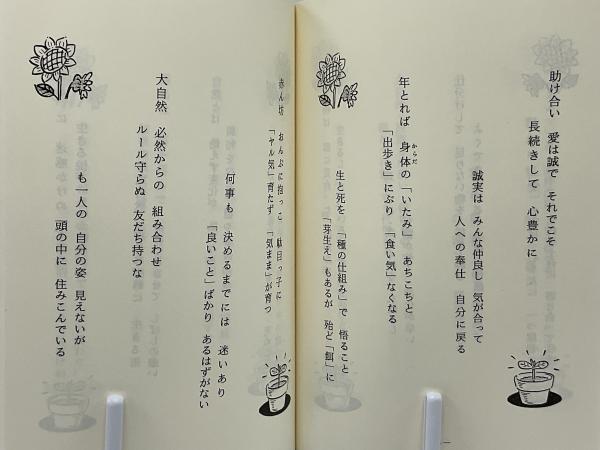 助け合い 愛は誠で それでこそ
長続きして 心豊かに
誠実は みんな仲良し 気が合って
人への奉仕 自分に戻る
年とれば 身体の「いたみ」 あちこちと
からだ
「出歩き」にぶり 「食い気」なくなる
生と死を 「種の仕組み」で 悟ること
「芽生え」もあるが 殆ど「餌」に
赤ん坊 おんぶに抱っこ 駄目っ子に
「ヤル気」育たず 「気まま」が育つ
何事も 決めるまでには 迷いあり
「良いこと」ばかり あるはずがない
大自然 必然からの 組み合わせ
ルール守らぬ 友だち持つな
も一人の 自分の姿 見えないが
頭の中に 住みこんでいる